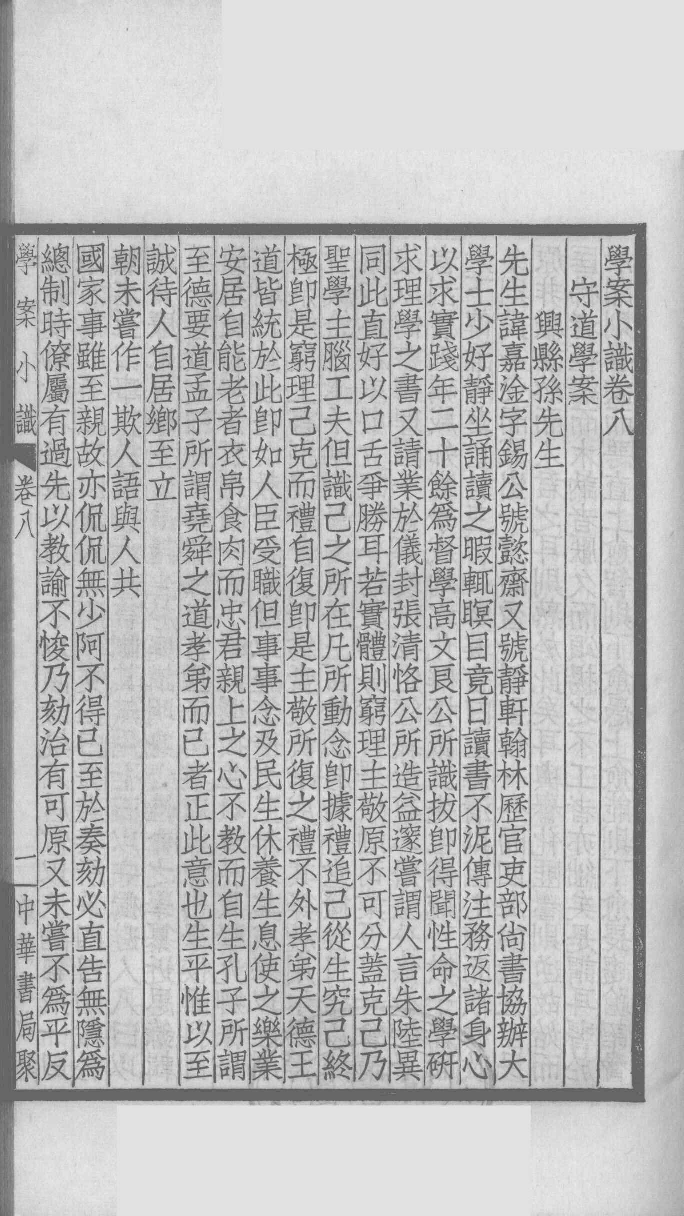 學案小識卷八
守道學案
興縣孫先生
先生諱嘉淦字錫公號懿齋又號靜軒翰林歷官吏部尙書協辦大
學士少好靜坐誦讀之暇輒瞑目竟日讀書不泥傳注務返諸身心
以求實踐年二十餘爲督學高文良公所識拔卽得聞性命之學硏
求理學之書又請業於儀封張清恪公所造益邃嘗謂人言朱陸異
同此直好以口舌爭勝耳若實體則窮理主敬原不可分蓋克己乃
聖學主腦工夫但識己之所在凡所動念卽據禮追己從生究己終
極卽是窮理己克而禮自復卽是主敬所復之禮不外孝弟天德王
道皆統於此卽如人臣受職但事事念及民生休養生息使之樂業
安居自能老者衣帛食肉而忠君親上之心不教而自生孔子所謂
至德要道孟子所謂堯舜之道孝弟而已者正此意也生平惟以至
誠待人自居鄉至立
朝未嘗作一欺人語與人共
國家事雖至親故亦侃侃無少阿不得已至於奏劾必直告無隱爲
總制時僚屬有過先以教諭不悛乃劾治有可原又未嘗不爲平反
學案小識 卷八 一 中華書局聚